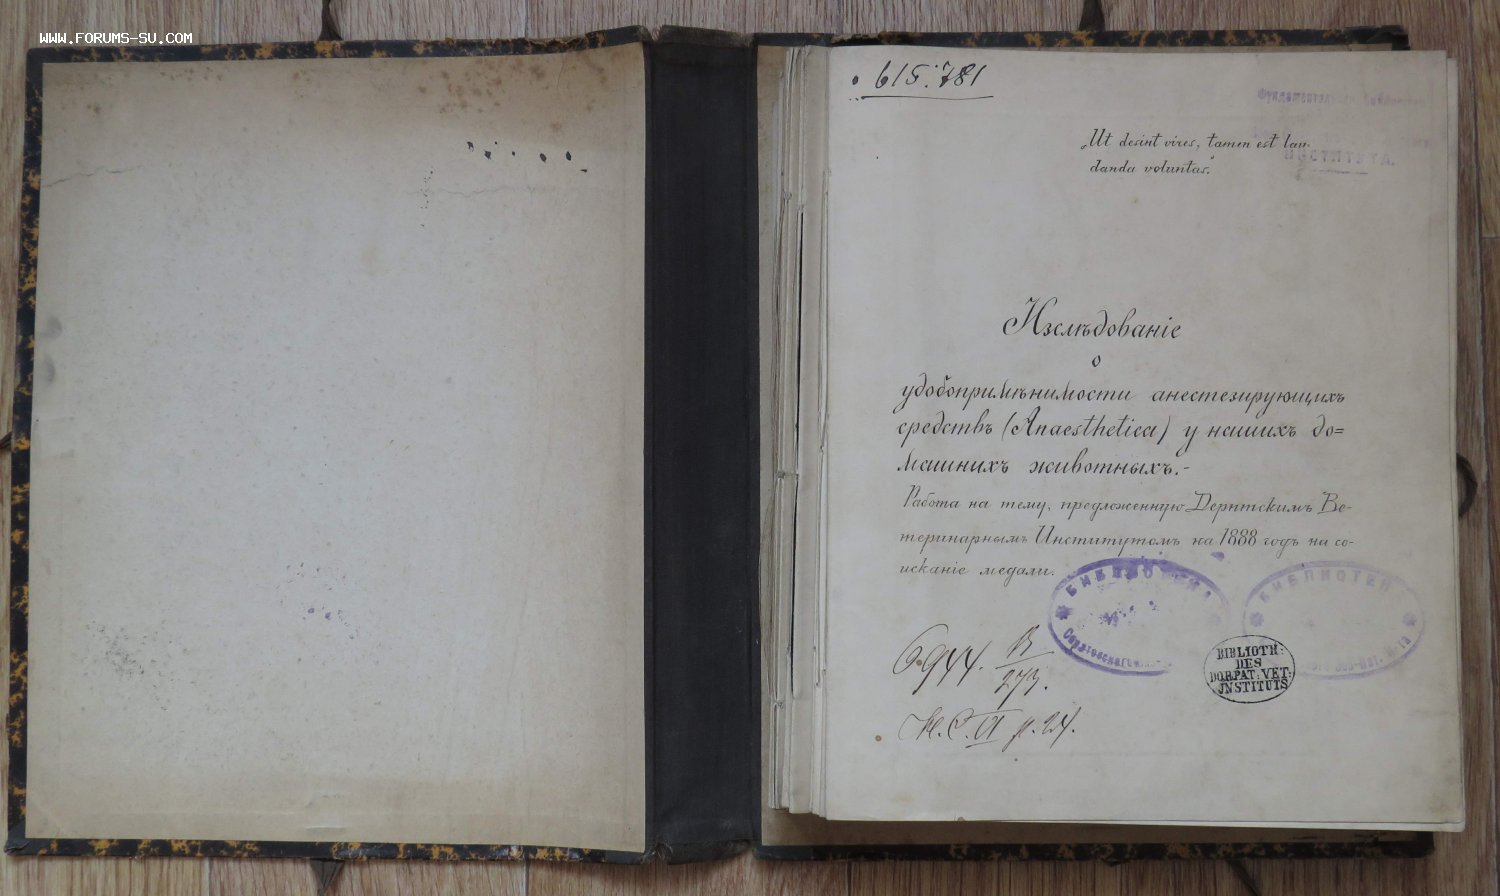 WWW.FORUMS-SU.COM
615.781
Фундаментальная
„Ut desint vires, tamen est lau-
ИНСТИТУТА.
danda voluntas."
Изслѣдованіе
о
удобопримѣнимости анестезирующихъ
средствъ (Anaesthetica) у нашихъ до=
машнихъ животныхъ.-
Работа на тему, предложенную Дерптскимъ Ве-
теринарнымъ Институтомъ на 1888 годъ на со-
исканіе медали.
БИБЛИОТЕКА
Саратовского
БИБЛИОТЕК
Зоо-Вет. И-та
6944. B
273.
BIBLIOTH:
DES
DORPAT: VET:
INSTITUTS
C. VI p. 24.